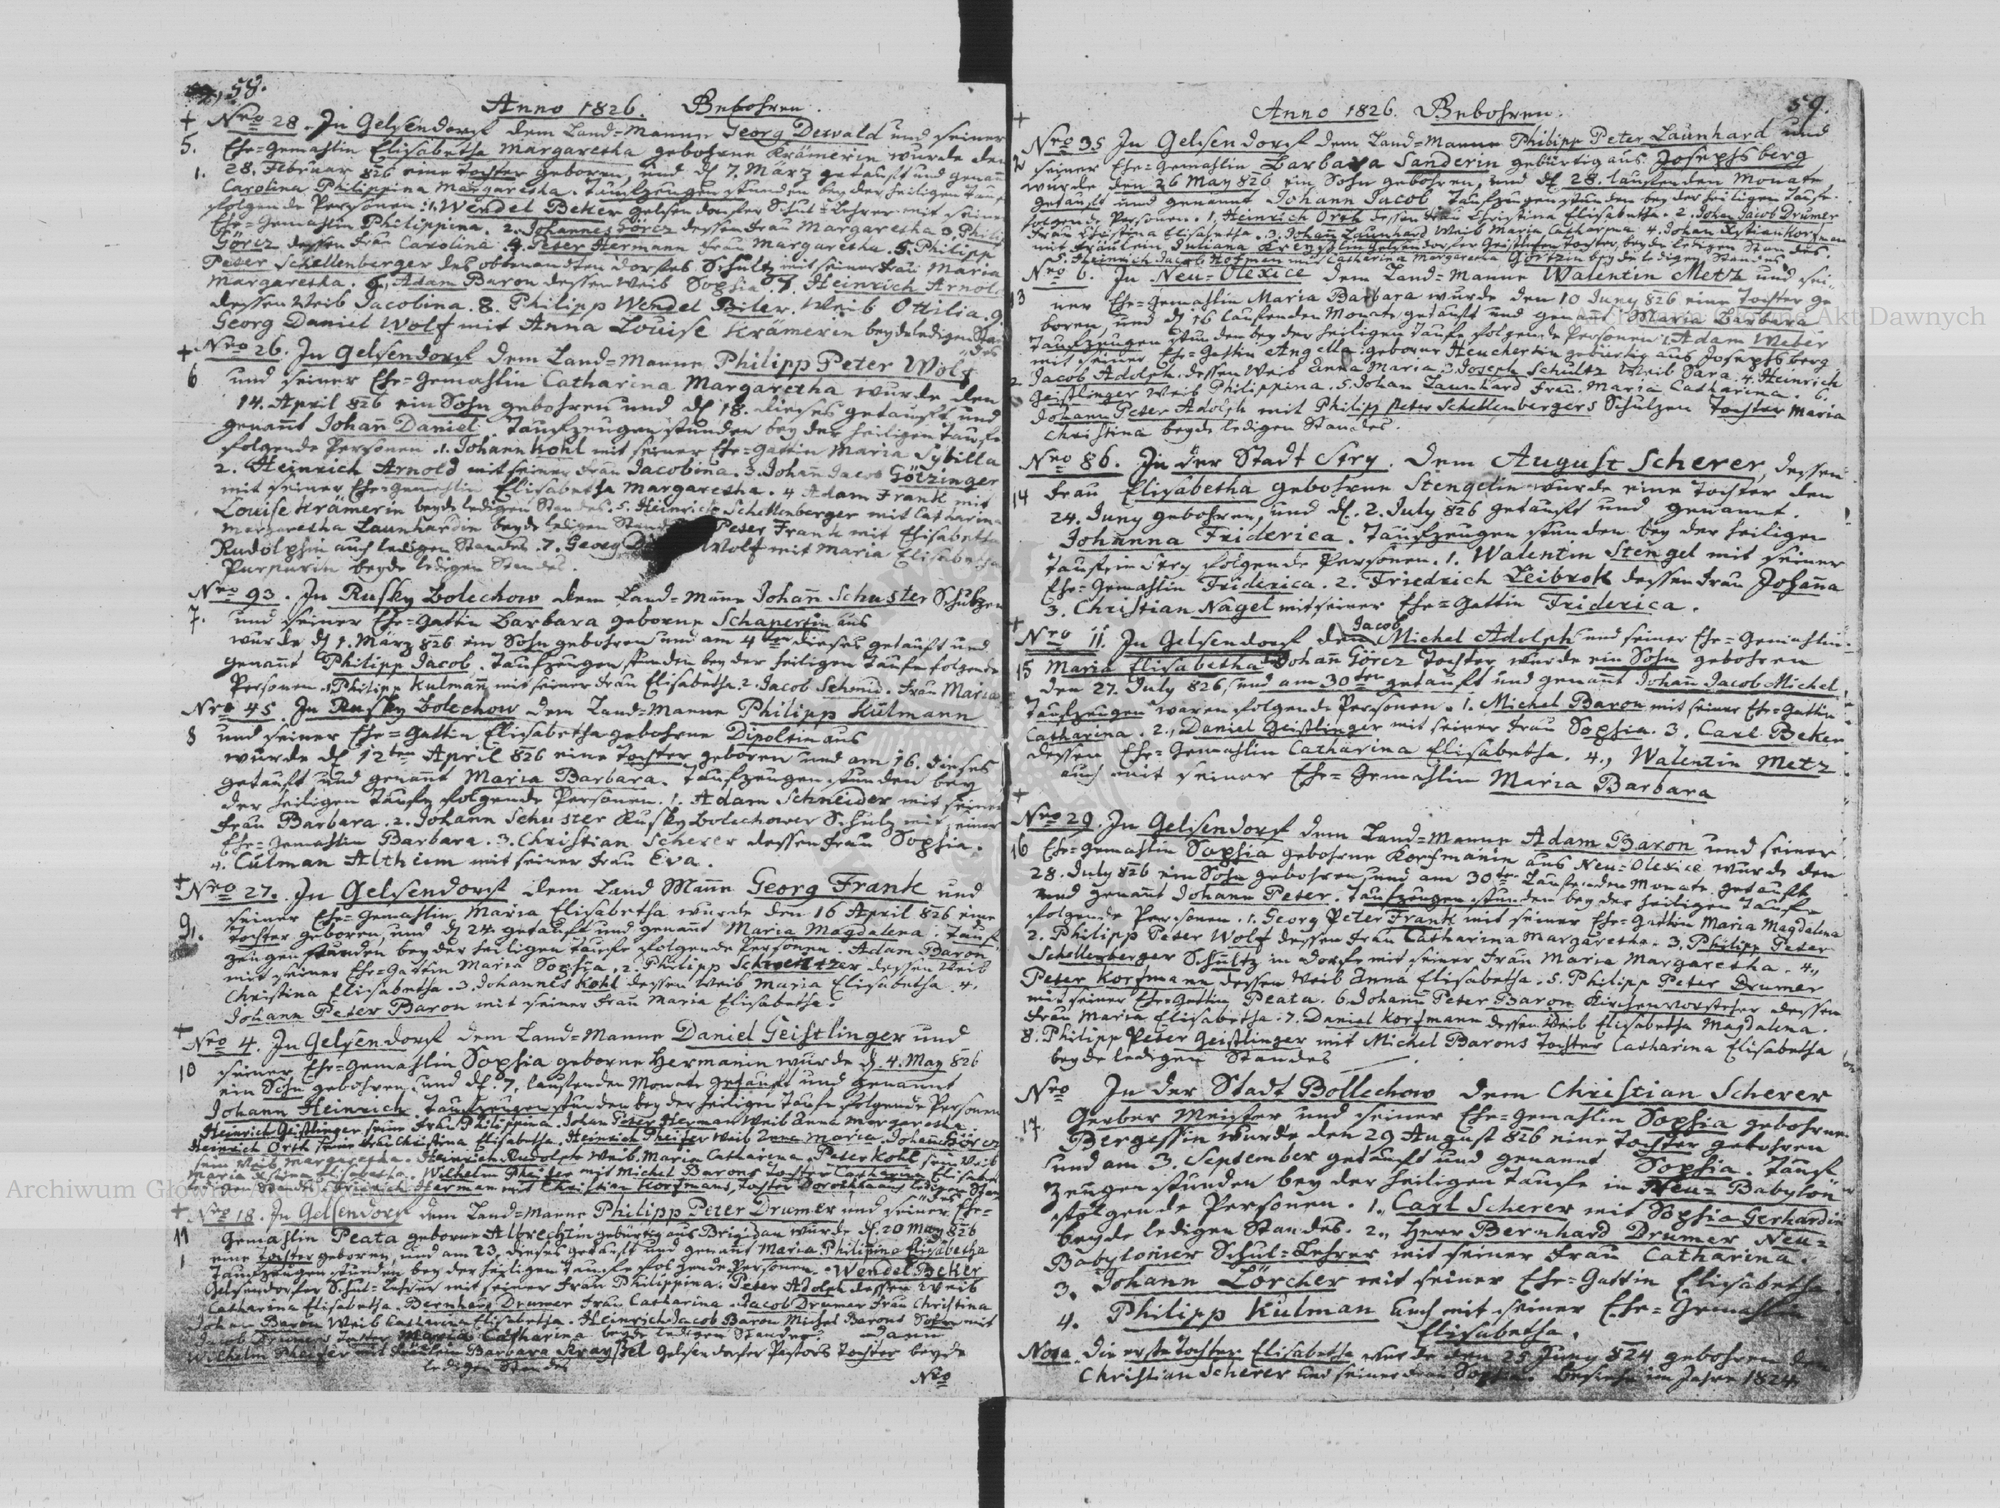 58.
Anno 1826. Gebohren.
Nro 28. In Gelsendorf dem Land=Manne Georg Dewald und seiner
5. Ehe=Gemahlin Elisabetha Margaretha gebohrne Krämerin wurde den
1. 28. Februar 826 eine Tochter geboren, und d 7. März getauft und genant
Carolina Philippina Margaretha. Taufzeugen stunden bey der heiligen Taufe
folgende Personen: 1. Wendel Beker Gelsendorfer Schul=Lehrer mit seiner
Ehe=Gemahlin Philippina. 2. Johannes Görcz dessen Frau Margaretha 3. Philip
Görcz dessen Frau Carolina 4. Peter Hermann Frau Margaretha. 5. Philipp
Peter Schellenberger des obbenandten Dorfes Schultz mit seiner Frau Maria
Margaretha. 6. Adam Baron dessen Weib Sophia. 7. Heinrich Arnold
dessen Weib Jacobina. 8. Philipp Wendel Biler. Weib Ottilia. 9
Georg Daniel Wolf mit Anna Louise Krämerin beyde ledigen Stan
des
Nro 26. In Gelsendorf dem Land=Manne Philipp Peter Wolf
6 und seiner Ehe=Gemahlin Catharina Margaretha wurde den
14. April 826 ein Sohn gebohren und d 18. dieses getauft und
genannt Johann Daniel. Taufzeugen stunden bey der heiligen Taufe
folgende Personen. 1. Johann Kohl mit seiner Ehe=Gattin Maria Sybilla
2. Heinrich Arnold mit seiner Frau Jacobina. 3. Johann Jacob Götzinger
mit seiner Ehe=Gemahlin Elisabetha Margaretha. 4 Adam Frank mit
Louise Krämerin beyde ledigen Standes. 5. Heinrich Schellenberger mit Catharina
Margaretha Launhardin beyde ledigen Stand Peter Frank mit Elisabetha
Rudolphin auch ledigen Standes. 7. Georg Wolf mit Maria Elisabetha
beyde ledigen Standes.
Nro 93. In Rusky Bolechow dem Land=Manne Johann Schuster Schultzen
7. und seiner Ehe=Gattin Barbara geborne Schapertin aus
wurde d 1. März 826 ein Sohn gebohren und am 4ten dieses getauft und
genannt Philipp Jacob. Taufzeugen stunden bey der heiligen Taufe folgende
Personen. 1. Philipp Kulmann mit seiner Frau Elisabetha. 2. Jacob Schmid. Frau Maria
Nro 45. In Rusky Bolechow dem Land=Manne Philipp Kulmann
8 und seiner Ehe=Gattin Elisabetha gebohrne Dipoltin aus
wurde d 12ten April 826 eine Tochter geboren und am 16. dieses
getauft und genannt Maria Barbara. Taufzeugen stunden bey
der heiligen Taufe folgende Personen. 1. Adam Schneider mit seiner
Frau Barbara. 2. Johann Schuster Rusky Bolechower Schultz mit seiner
Ehe=Gemahlin Barbara. 3. Christian Scherer dessen Frau Sophia.
4. Culman Altheim mit seiner Frau Eva.
Nro 27. In Gelsendorf dem Land Manne Georg Frank und
9. seiner Ehe=Gemahlin Maria Elisabetha wurde den 16 April 826 eine
Tochter geboren, und d 24 getauft und genannt Maria Magdalena. Tauf=
zeugen stunden bey der heiligen Taufe folgende Personen. Adam Baron
mit seiner Ehe=Gattin Maria Sophia. 2. Philipp Schweitzer dessen Weib
Christina Elisabetha. 3. Johannes Kohl dessen Weib Maria Elisabetha. 4.
Johann Peter Baron mit seiner Frau Maria Elisabetha.
Nro 4. In Gelsendorf dem Land=Manne Daniel Geistlinger und
10 seiner Ehe=Gemahlin Sophia geborne Hermanin wurde d 4. May 826
ein Sohn gebohren, und d. 7. laufenden Monats getauft und genannt
Johann Heinrich. Taufzeugen stunden bey der heiligen Taufe folgende Personen
Heinrich Geistlinger seine Frau Philippina. Johan Peter Herman Weib Anna Margaretha
Heinrich Orth seine Frau Christina Elisabetha. Heinrich Pfeifer Weib Anna Maria. Johann Görcz
sein Weib Margaretha. Heinrich Rudolph Weib Maria Catharina. Peter Kohl sein Weib
Maria Elisabetha. Wilhelm Pfeifer mit Michel Barons Tochter Catharina Elisabet
Herman mit Christian Korfmans Tochter Dorothea
Nro 18. In Gelsendorf dem Land=Manne Philipp Peter Drumer und seiner Ehe=
11 Gemahlin Peata geborne Albrechtin gebürtig aus Brigidau wurde d 20 May 826
1 eine Tochter geboren, und am 23 dieses getauft und genant Maria Philipina Elisabetha
Taufzeugen stunden bey der heiligen Taufe folgende Personen. Wendel Beker
Gelsendorfer Schul=Lehrer mit seiner Frau Philippina. Peter Adolph dessen Weib
Catharina Elisabetha. Bernhard Drumer Frau Catharina. Jacob Drumer Frau Christina
Johan Baron Weib Catharina Elisabetha. Heinrich Jacob Baron Michel Barons Sohn mit
Jacob Drumers Tochter Maria Catharina beyde ledigen Standes und
Wilhelm Pfeifer mit Fräulein Barbara Krayssel Gelsendorfer Pastors Tochter beyde
ledigen Standes
Nro
59.
Anno 1826. Gebohren.
Nro 35 In Gelsendorf dem Land=Manne Philipp Peter Launhard und
seiner Ehe=Gemahlin Barbara Sanderin gebürtig aus Josephsberg
wurde den 26 May 826 ein Sohn gebohren, und d 28. laufenden Monats
getauft und genannt Johann Jacob. Taufzeugen stunden bey der heiligen Taufe
folgende Personen. 1. Heinrich Orth dessen Frau Christina Elisabetha. 2. Johan Jacob Drumer
Frau Christina Elisabetha. 3. Johann Launhard Weib Maria Catharina. 4. Johan Kristian Korfman
mit Fräulein Juliana Gelsendorfer Geistlichen Tochter, beyde ledigen Standes
5. Heinrich Jacob Hofman mit Catharina Margaretha Görtzin beyde ledigen Standes
Nro 6. In Neu=Olexice dem Land=Manne Walentin Metz und sei=
13 ner Ehe=Gemahlin Maria Barbara wurde den 10 Juny 826 eine Tochter ge
boren, und d 16 laufenden Monats getauft und genant Maria Barbara
Taufzeugen stunden bey der heiligen Taufe folgende Personen 1. Adam Weber
mit seiner Ehe=Gattin Angella geborne Heuchertin gebürtig aus Josephsberg
2. Jacob Adolph dessen Weib Anna Maria 3. Joseph Schultz Weib Sara. 4. Heinrich
Geistlinger Weib Philippina. 5. Johan Launhard Frau Maria Catharina. 6.
Johann Peter Adolph mit Philipp Peter Schellenbergers Schulzen Tochter Maria
Christina beyde ledigen Standes.
Nro 86. In der Stadt Stry. dem August Scherer, dessen
14 Frau Elisabetha gebohrne Stengelin wurde eine Tochter den
24. Juny gebohren, und d. 2. July 826 getauft und genannt.
Johanna Friderica. Taufzeugen stunden bey der heiligen
Taufe in Stry folgende Personen. 1. Walentin Stengel mit seiner
Ehe=Gemahlin Friderica. 2. Friedrich Leibrok dessen Frau Johanna
3. Christian Nagel mit seiner Ehe=Gattin Friderica.
Nro 11. In Gelsendorf dem Jacob Michel Adolph und seiner Ehe=Gemahlin
15 Maria Elisabetha Johann Görcz Tochter wurde ein Sohn gebohren
den 27. July 826, und am 30ten getauft und genannt Johann Jacob Michel
Taufzeugen waren folgende Personen. 1. Michel Baron mit seiner Ehe=Gattin
Catharina. 2., Daniel Geistlinger mit seiner Frau Sophia. 3. Carl Beker
dessen Ehe=Gemahlin Catharina Elisabetha. 4., Walentin Metz
auch mit seiner Ehe=Gemahlin Maria Barbara
Nro 29. In Gelsendorf dem Land=Manne Adam Baron und seiner
16 Ehe=Gemahlin Sophia gebohrne Korfmanin aus Neu=Olexice wurde den
28. July 826 ein Sohn gebohren, und am 30ten laufenden Monats getauft
und genannt Johann Peter. Taufzeugen stunden bey der heiligen Taufe
folgende Personen. 1. Georg Peter Frank mit seiner Ehe=Gattin Maria Magdalena
2. Philipp Peter Wolf dessen Frau Catharina Margaretha. 3. Philipp Peter
Schellenberger Schultz in Dorfe mit seiner Frau Maria Margaretha. 4.,
Peter Korfmann dessen Weib Anna Elisabetha. 5. Philipp Peter Drumer
mit seiner Ehe=Gattin Peata. 6. Johann Peter Baron Kirchenvorsteher dessen
Frau Maria Elisabetha. 7. Daniel Korfmann dessen Weib Elisabetha Magdalena.
8. Philipp Peter Geistlinger mit Michel Barons Tochter Catharina Elisabetha
beyde ledigen Standes
Nro In der Stadt Bollechow dem Christian Scherer
17. Gerber Meister und seiner Ehe=Gemahlin Sophia gebohrne
Bergessin wurde den 29 August 826 eine Tochter gebohren
und am 3. September getauft und genannt Sophia. Tauf
zeugen stunden bey der heiligen Taufe in Neu=Babylon
folgende Personen. 1., Carl Scherer mit Sophia Gerhardin
beyde ledigen Standes. 2., Herr Bernhard Drumer Neu=
Babyloner Schul=Lehrer mit seiner Frau Catharina.
3. Johann Lörcher mit seiner Ehe=Gattin Elisabetha.
4. Philipp Kulman auch mit seiner Ehe=Gemahlin
Elisabetha.
Nota. Die erste Tochter Elisabetha wurde den 25 Juny 824 gebohren dem
Christian Scherer und seiner Frau Sophia. Besiehe im Jahre 1824
Archiwum Główne Akt Dawnych
Archiwum Główne Akt Dawnych